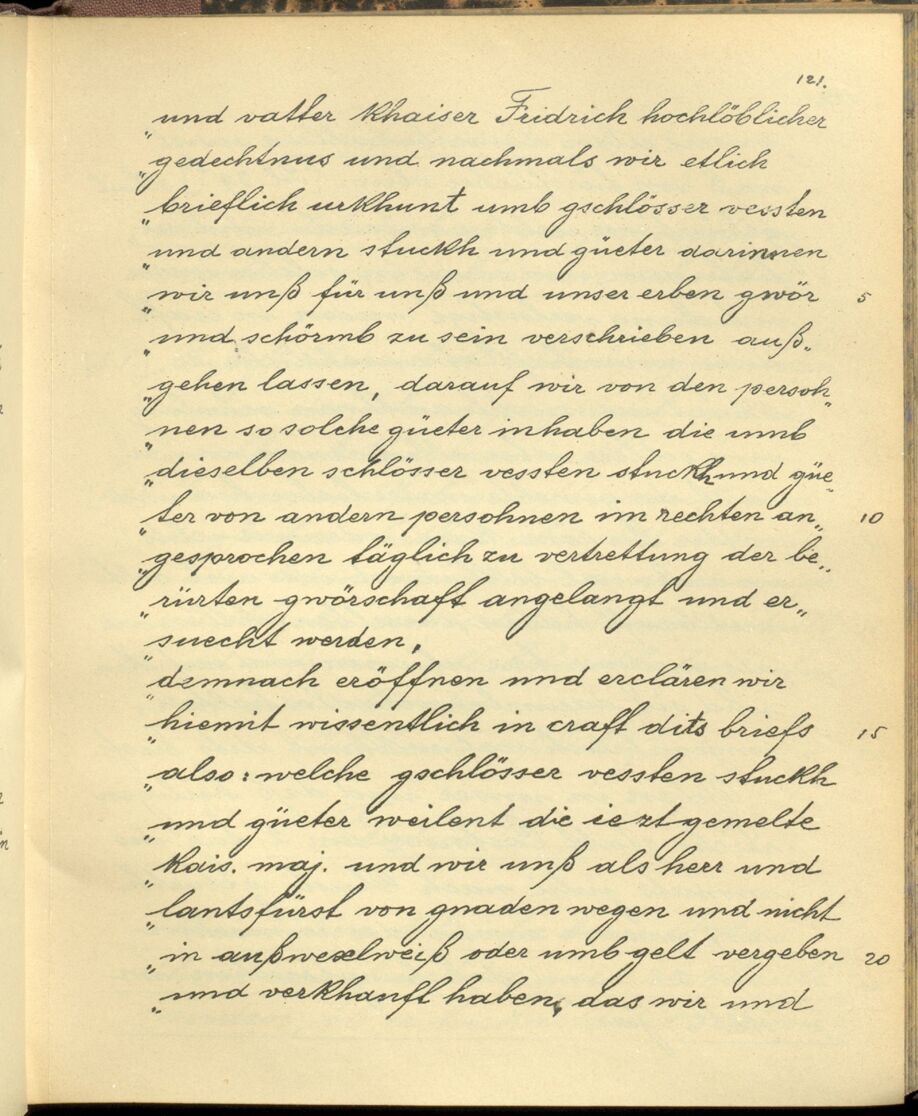 121.
„und vatter Khaiser Fridrich hochlöblicher
„gedechtnus und nachmals wir etlich
„brieflich urkhunt umb gschlösser vessten
„und andern stuckh und güeter darinnen
„wir unß für unß und unser erben gwör 5
„und schörmb zu sein verschrieben auß„
„gehen lassen, darauf wir von den persoh„
„nen so solche güeter inhaben die umb
„dieselben schlösser vessten stuckh und güe„
„ter von andern persohnen im rechten an„ 10
„gesprochen täglich zu vertrettung der be„
„rürten gwörschaft angelangt und er„
„suecht werden,
„demnach eröffnen und erclären wir
„hiemit wissentlich in craft dits briefs 15
„also: welche gschlösser vessten stuckh
„und güeter weilent die iezt gemelte
„Kais. maj. und wir unß als herr und
„lantsfürst von gnaden wegen und nicht
„in außwexelweiß oder umb gelt vergeben 20
„und verkhauft haben, das wir und